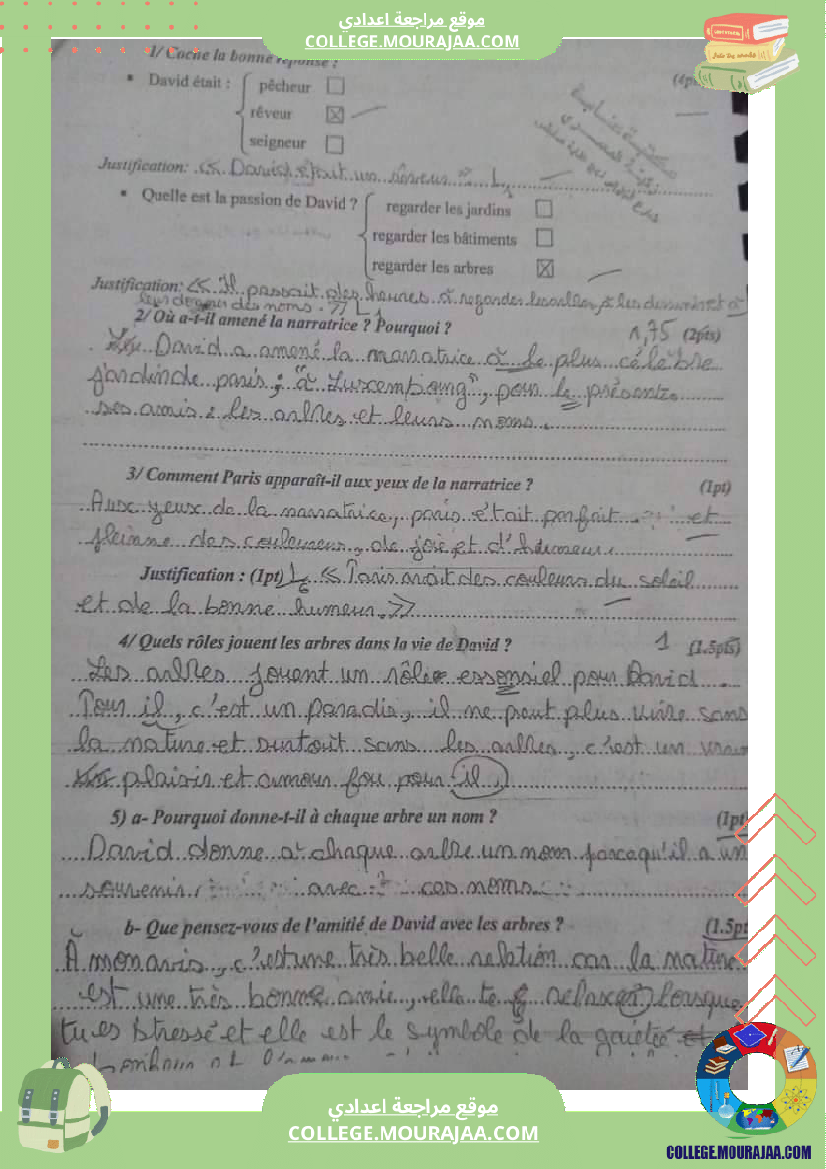 موقع مراجعة اعدادي
COLLEGE.MOURAJAA.COM
1/ Coche la bonne réponse :
• David était :
pêcheur
rêveur
seigneur
(4pts
Justification: << David était un rêveur >> 1
• Quelle est la passion de David ?
regarder les jardins
regarder les bâtiments
regarder les arbres
Justification: << Il passait des heures à regarder les arbres, à les dessiner et à
leur donner des noms. >> 1
2/ Où a-t-il amené la narratrice ? Pourquoi ?
1,75 (2pts)
David a amené la narratrice à le plus célèbre
jardin de paris ; "à Luxembourg", pour le présente
ses amis : les arbres et leurs noms.
3/ Comment Paris apparaît-il aux yeux de la narratrice ?
(1pt)
Aux yeux de la narratrice, paris était parfait et
pleinne des couleurs, de joie et d'humeur.
Justification : (1pt) << Paris avait des couleurs du soleil
et de la bonne humeur >>
4/ Quels rôles jouent les arbres dans la vie de David ?
1 (1.5pts)
Les arbres jouent un rôle essensiel pour David
Pour il, c'est un paradis, il ne peut plus vivre sans
la nature et surtout sans les arbres, c'est un vrai
plaisir et amour fou pour il.
5) a- Pourquoi donne-t-il à chaque arbre un nom ?
(1pt
David donne à chaque arbre un nom parcequ'il a un
souvenir avec ces noms
b- Que pensez-vous de l'amitié de David avec les arbres ?
(1.5pt
À mon avis, c'est une très belle relation car la nature
est une très bonne amie, elle te relaxer lorsque
tu es stressé et elle est le symbole de la gaietée et
موقع مراجعة اعدادي
COLLEGE.MOURAJAA.COM
COLLEGE.MOURAJAA.COM